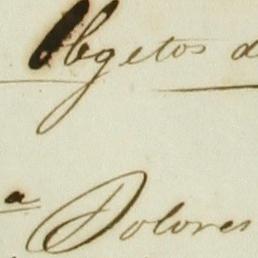 Obgetos d
a Dolores